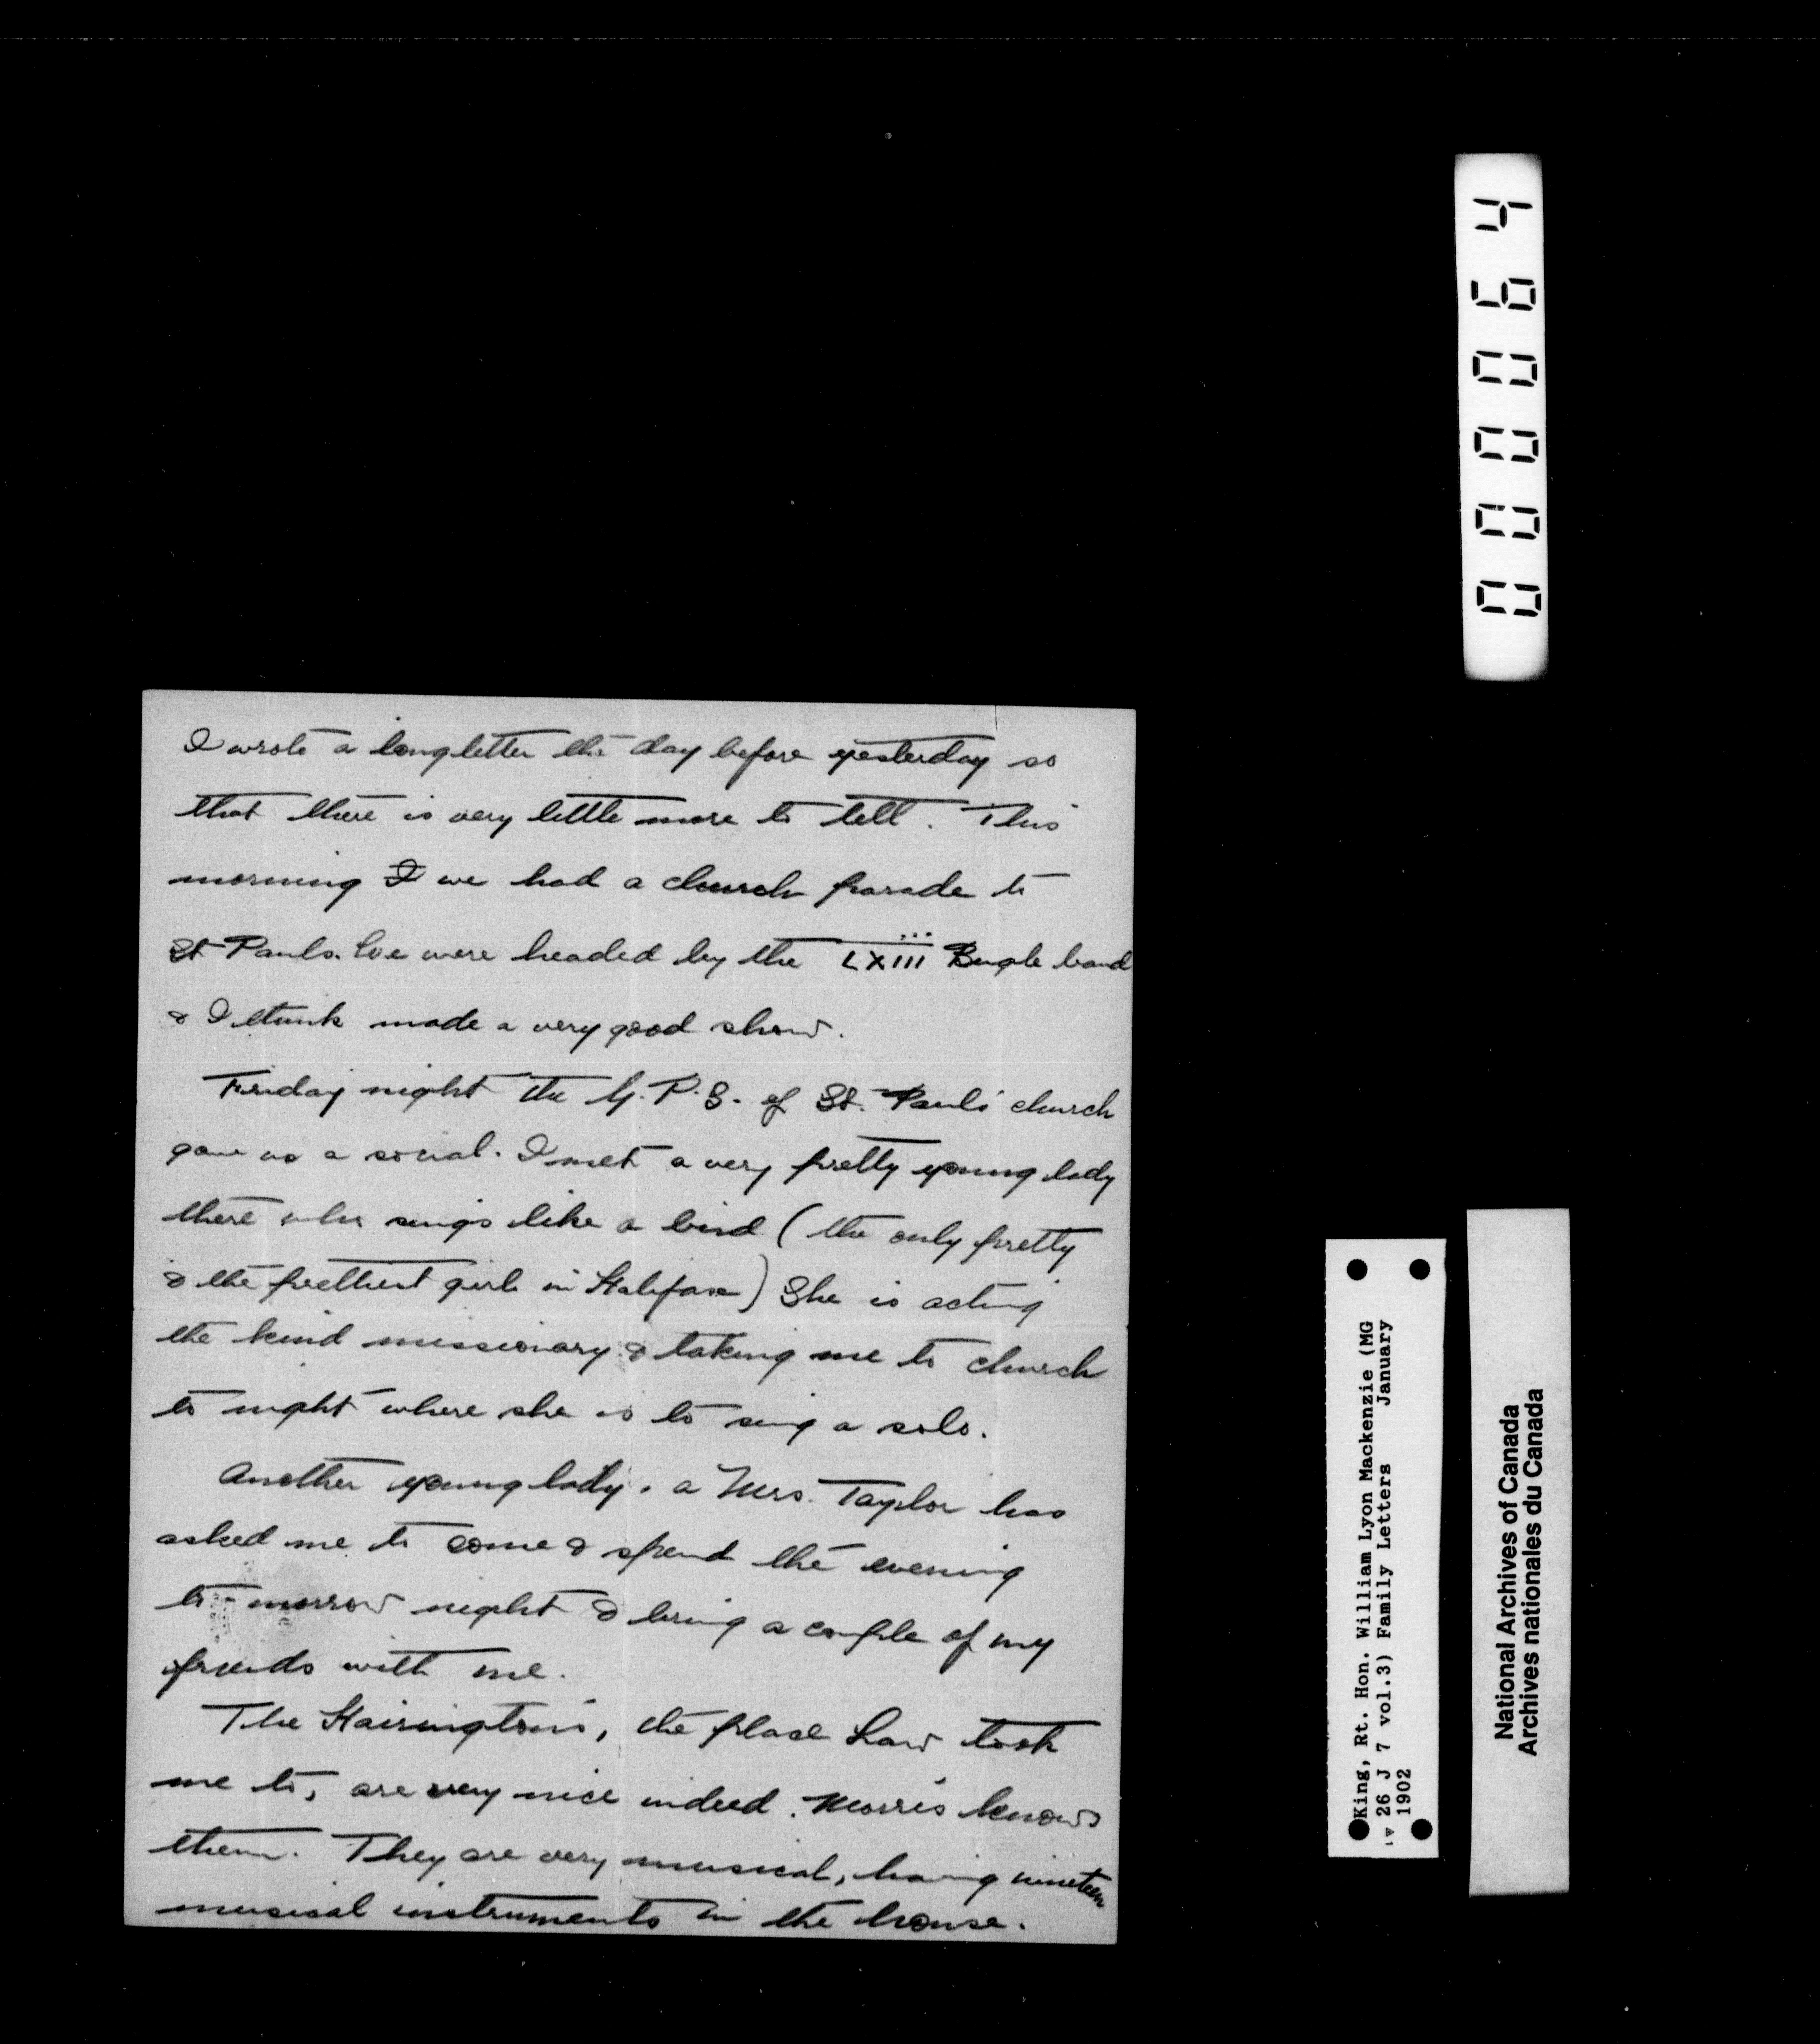 I wrote a long letter the day before yesterday so
that there is very little more to tell. This
morning I we had a church parade to
St Pauls. We were headed by the LXIII Bugle band
& I think made a very good show.
Friday night the Y.P.S. of St. Paul's church
gave us a social. I met a very pretty young lady
there who sings like a bird (the only pretty
& the prettiest girl in Halifax) She is acting
the kind missionary & taking me to church
to night where she is to sing a solo.
Another young lady, a Mrs. Taylor has
asked me to come & spend the evening
to-morrow night & bring a couple of my
friends with me.
The Hairington's, the place Law took
me to, are very nice indeed. Morris knows
them. They are very musical, having nineteen
musical instruments in the house.
000064
King, Rt. Hon. William Lyon Mackenzie (MG
26 J 7 vol.3) Family Letters January
1902
National Archives of Canada
Archives nationales du Canada